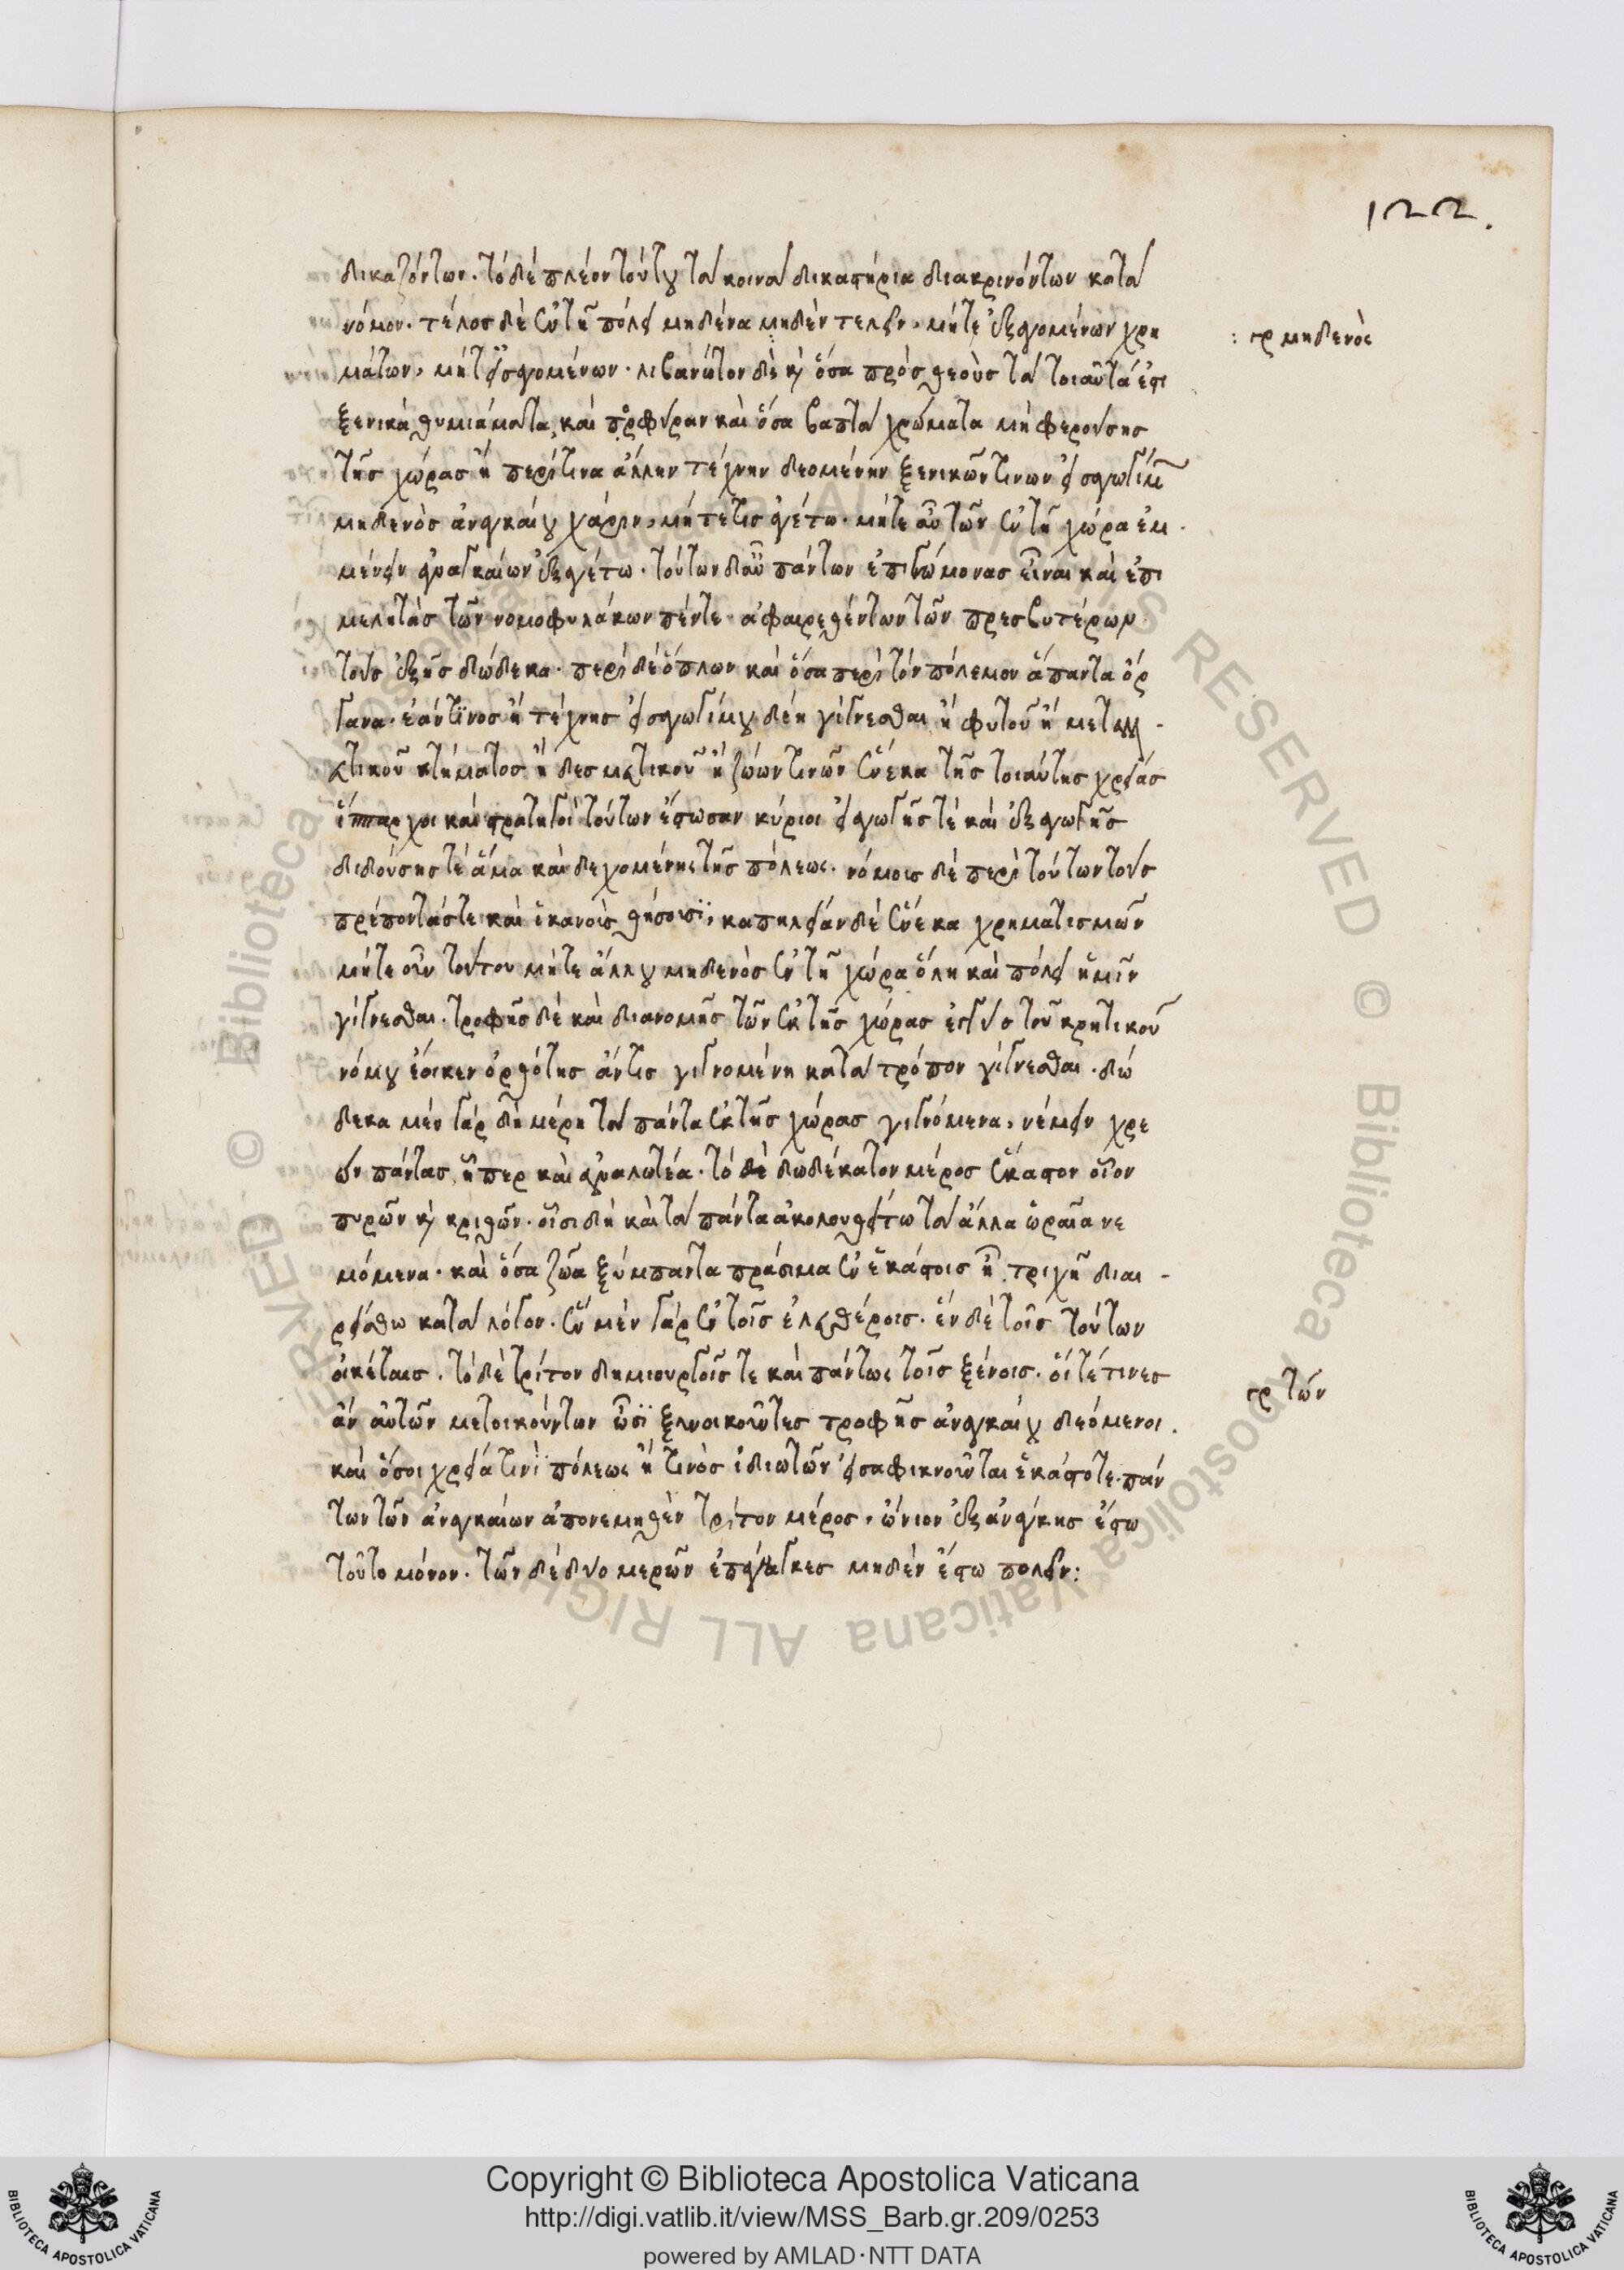 122.
δικαζόντων. τὸ δὲ πλέον τούτου τὰ κοινὰ δικαστήρια διακρινόντων κατὰ
νόμον. τέλος δὲ ἐν τῇ πόλει μηδένα μηδὲν τελεῖν, μήτε ἐξαγομένων χρη
: γρ μηδενὸς
μάτων, μήτ' εἰσαγομένων. λιβανωτὸν δὲ καὶ ὅσα πρὸς θεοὺς τὰ τοιαῦτά ἐστι
ξενικὰ θυμιάματα, καὶ πορφύραν καὶ ὅσα βαπτὰ χρώματα μὴ φερούσης
τῆς χώρας ἢ περί τινα ἄλλην τέχνην δεομένην ξενικῶν τινων εἰσαγωγίμων
μηδενὸς ἀναγκαίου χάριν, μήτε τις ἀγέτω. μήτε αὖ τῶν ἐν τῇ χώρα ἐμ
μένειν ἀναγκαίων ἐξαγέτω. τούτων δ' αὖ πάντων ἐπιγνώμονας εἶναι καὶ ἐπι
μελητὰς τῶν νομοφυλάκων πέντε ἀφαιρεθέντων τῶν πρεσβυτέρων
τοὺς ἑξῆς δώδεκα. περὶ δὲ ὅπλων καὶ ὅσα περὶ τὸν πόλεμον ἅπαντα ὄρ
γανα. ἐάν τινος ἢ τέχνης εἰσαγωγίμου δέη γίγνεσθαι ἢ φυτοῦ ἢ μεταλλ
ευτικοῦ κτήματος ἢ δεσμευτικοῦ ἢ ζώων τινῶν ἕνεκα τῆς τοιαύτης χρείας
ἵππαρχοι καὶ στρατηγοὶ τούτων ἔστωσαν κύριοι εἰσαγωγῆς τὲ καὶ ἐξαγωγῆς
διδούσης τὲ ἅμα καὶ δεχομένης τῆς πόλεως. νόμοις δὲ περὶ τούτων τοὺς
πρέποντάς τε καὶ ἱκανοὺς θήσουσι, καπηλείαν δὲ ἕνεκα χρηματισμῶν
μήτε οὖν τούτου μήτε ἄλλου μηδενὸς ἐν τῇ χώρα ὅλη καὶ πόλει ἡμῖν
γίγνεσθαι. τροφῆς δὲ καὶ διανομῆς τῶν ἐκ τῆς χώρας ἐγγὺς τοῦ κρητικοῦ
νόμου ἔοικεν ὀρθότης ἄν τις γιγνομένη κατὰ τρόπον γίγνεσθαι. δώ
δεκα μὲν γὰρ δὴ μέρη τὰ πάντα ἐκ τῆς χώρας γιγνόμενα, νέμειν χρε
ὼν πάντας, ᾗπερ καὶ ἀναλωτέα. τὸ δὲ δωδέκατον μέρος ἕκαστον οἷον
πυρῶν καὶ κριθῶν. οἷσι δὴ καὶ τὰ πάντα ἀκολουθείτω τὰ ἄλλα ὡραῖα νε
μόμενα. καὶ ὅσα ζῶα ξύμπαντα πράσιμα ἐν ἑκάστοις ἢ, τριχῆ διαι
ρείσθω κατὰ λόγον. ἓν μὲν γὰρ ἐν τοῖς ἐλευθέροις. ἓν δὲ τοῖς τούτων
οἰκέταις. τὸ δὲ τρίτον δημιουργοῖς τε καὶ πάντως τοῖς ξένοις. οἵ τέ τινες
γρ τῶν
ἂν αὐτῶν μετοικούντων ὦσι ξυνοικοῦντες τροφῆς ἀναγκαίου δεόμενοι.
καὶ ὅσοι χρείᾳ τινὶ πόλεως ἤ τινος ἰδιωτῶν εἰσαφικνοῦνται ἑκάστοτε. πάν
των τῶν ἀναγκαίων ἀπονεμηθὲν τρίτον μέρος, ὤνιον ἐξ ἀνάγκης ἔστω
τοῦτο μόνον. τῶν δὲ δύο μερῶν ἐπάναγκες μηδὲν ἔστω πωλεῖν:
Copyright © Biblioteca Apostolica Vaticana
http://digi.vatlib.it/view/MSS_Barb.gr.209/0253
powered by AMLAD·NTT DATA